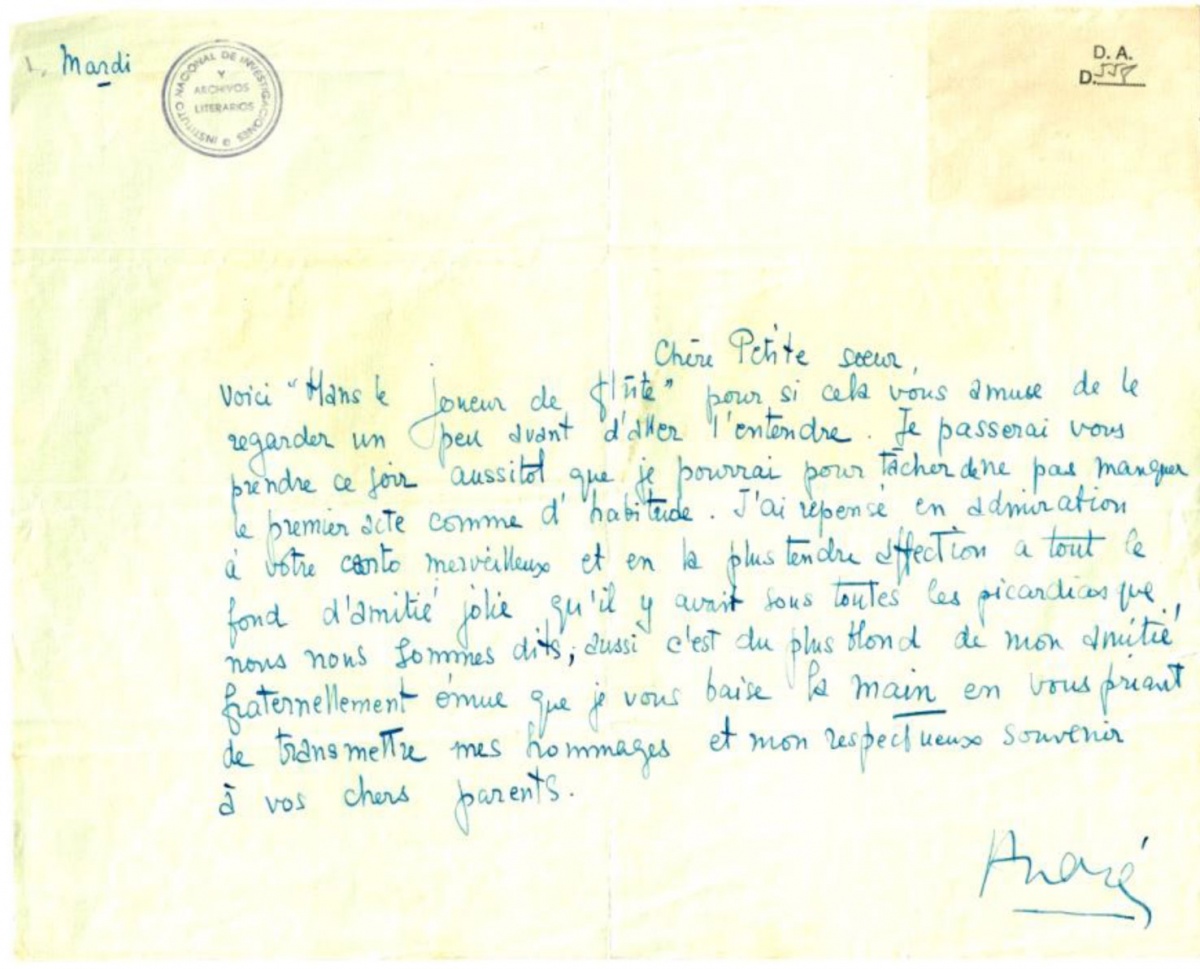 Mardi
INSTITUTO NACIONAL DE INVESTIGACIONES
Y
ARCHIVOS
LITERARIOS
D. A.
D.
Chère Petite sœur,
Voici "Hans le joueur de flûte" pour si cela vous amuse de le
regarder un peu avant d'aller l'entendre. Je passerai vous
prendre ce soir aussitôt que je pourrai pour tâcher de ne pas manquer
le premier acte comme d'habitude. J'ai repensé en admiration
à votre canto merveilleux et en la plus tendre affection a tout le
fond d'amitié jolie qu'il y avait sous toutes les picardias que
nous nous sommes dits; aussi c'est du plus blond de mon amitié
fraternellement émue que je vous baise la main en vous priant
de transmettre mes hommages et mon respectueux souvenir
à vos chers parents.
André